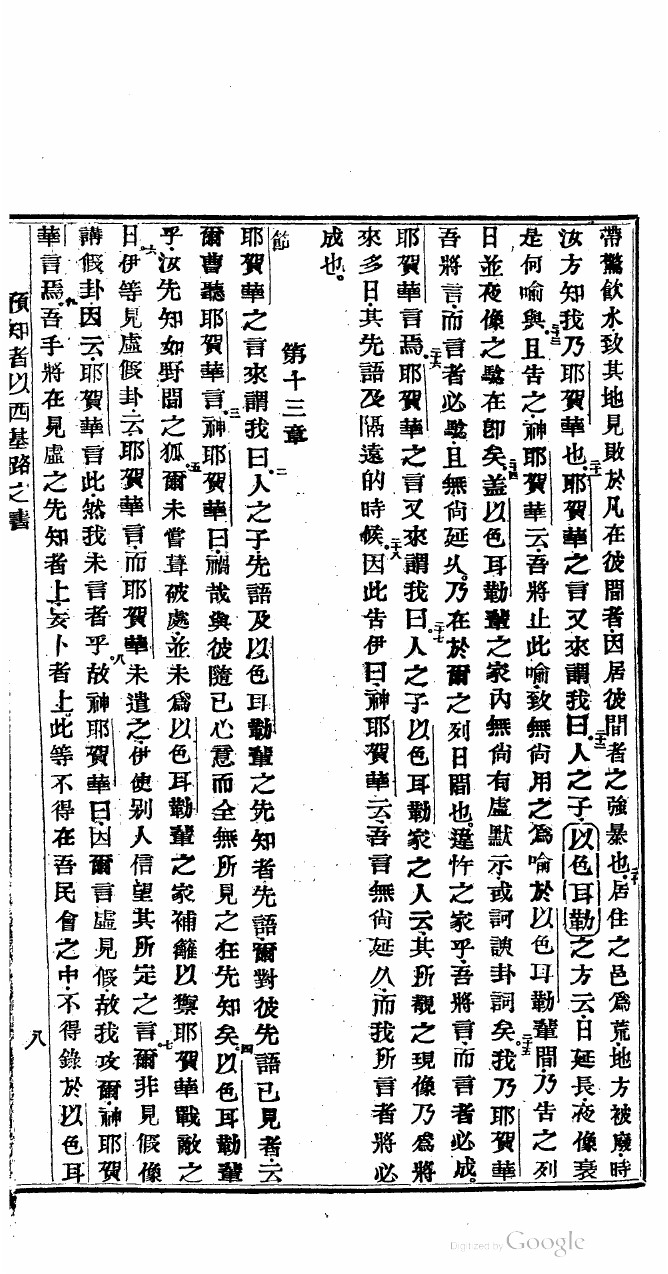 帶驚飲水致其地見敗於凡在彼間者因居彼間者之強暴也二十居住之邑爲荒地方被廢時
汝方知我乃耶賀華也二十一耶賀華之言又來謂我曰二十二人之子以色耳勒之方云日延長夜像衰
是何喻與二十三且告之神耶賀華云吾將止此喻致無尙用之爲喻於以色耳勒輩間乃告之列
日並夜像之騐在卽矣二十四蓋以色耳勒輩之家內無尙有虛默示或訶諛卦詞矣二十五我乃耶賀華
吾將言而言者必騐且無尙延久乃在於爾之列日間也違忤之家乎吾將言而言者必成
耶賀華言焉二十六耶賀華之言又來謂我曰二十七人之子以色耳勒家之人云其所覩之現像乃爲將
來多日其先語及隔遠的時候二十八因此告伊曰神耶賀華云吾言無尙延久而我所言者將必
成也
第十三章
節
耶賀華之言來謂我曰二人之子先語及以色耳勒輩之先知者先語爾對彼先語己見者云
爾曹聽耶賀華言三神耶賀華曰禍哉與彼隨己心意而全無所見之狂先知矣四以色耳勒輩
乎汝先知如野間之狐五爾未嘗葺破處並未爲以色耳勒輩之家補籬以禦耶賀華戰敵之
日六伊等見虛假卦云耶賀華言而耶賀華未遣之伊使别人信望其所定之言七爾非見假像
講假卦因云耶賀華言此然我未言者乎八故神耶賀華曰因爾言虛見假故我攻爾神耶賀
華言焉九吾手將在見虛之先知者上妄卜者上此等不得在吾民會之中不得錄於以色耳
預知者以西基路之書
八
Digitized by Google